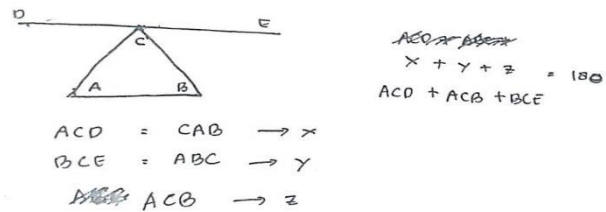 D E
C
A B
ACD = CAB → x
BCE = ABC → y
ACB → z
x + y + z = 180
ACD + ACB + BCE